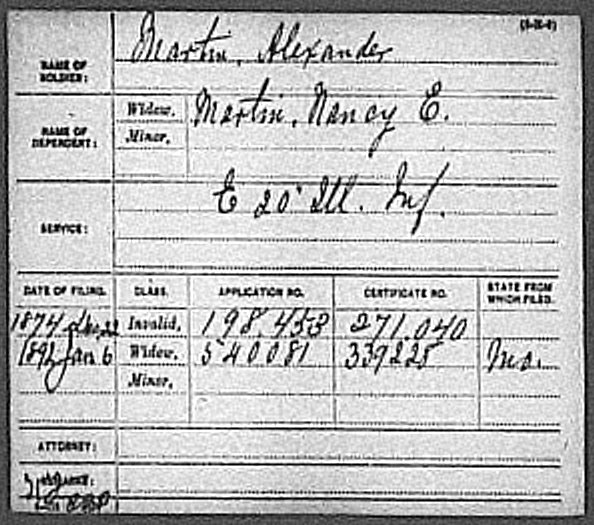 (3-IX-6)
NAME OF SOLDIER: Martin, Alexander
NAME OF DEPENDENT: Widow, Martin, Nancy E.
Minor,
SERVICE: E 20" Ill. Inf.
DATE OF FILING. CLASS. APPLICATION NO. CERTIFICATE NO. STATE FROM WHICH FILED.
1874 Dec, 22 Invalid, 198.453 271.040
1892 Jan 6 Widow, 540081 339228 Mo.
Minor,
ATTORNEY:
REMARKS: